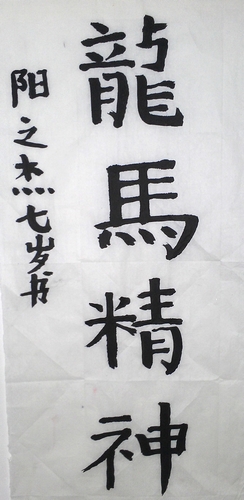 龍馬精神
阳之杰七岁书